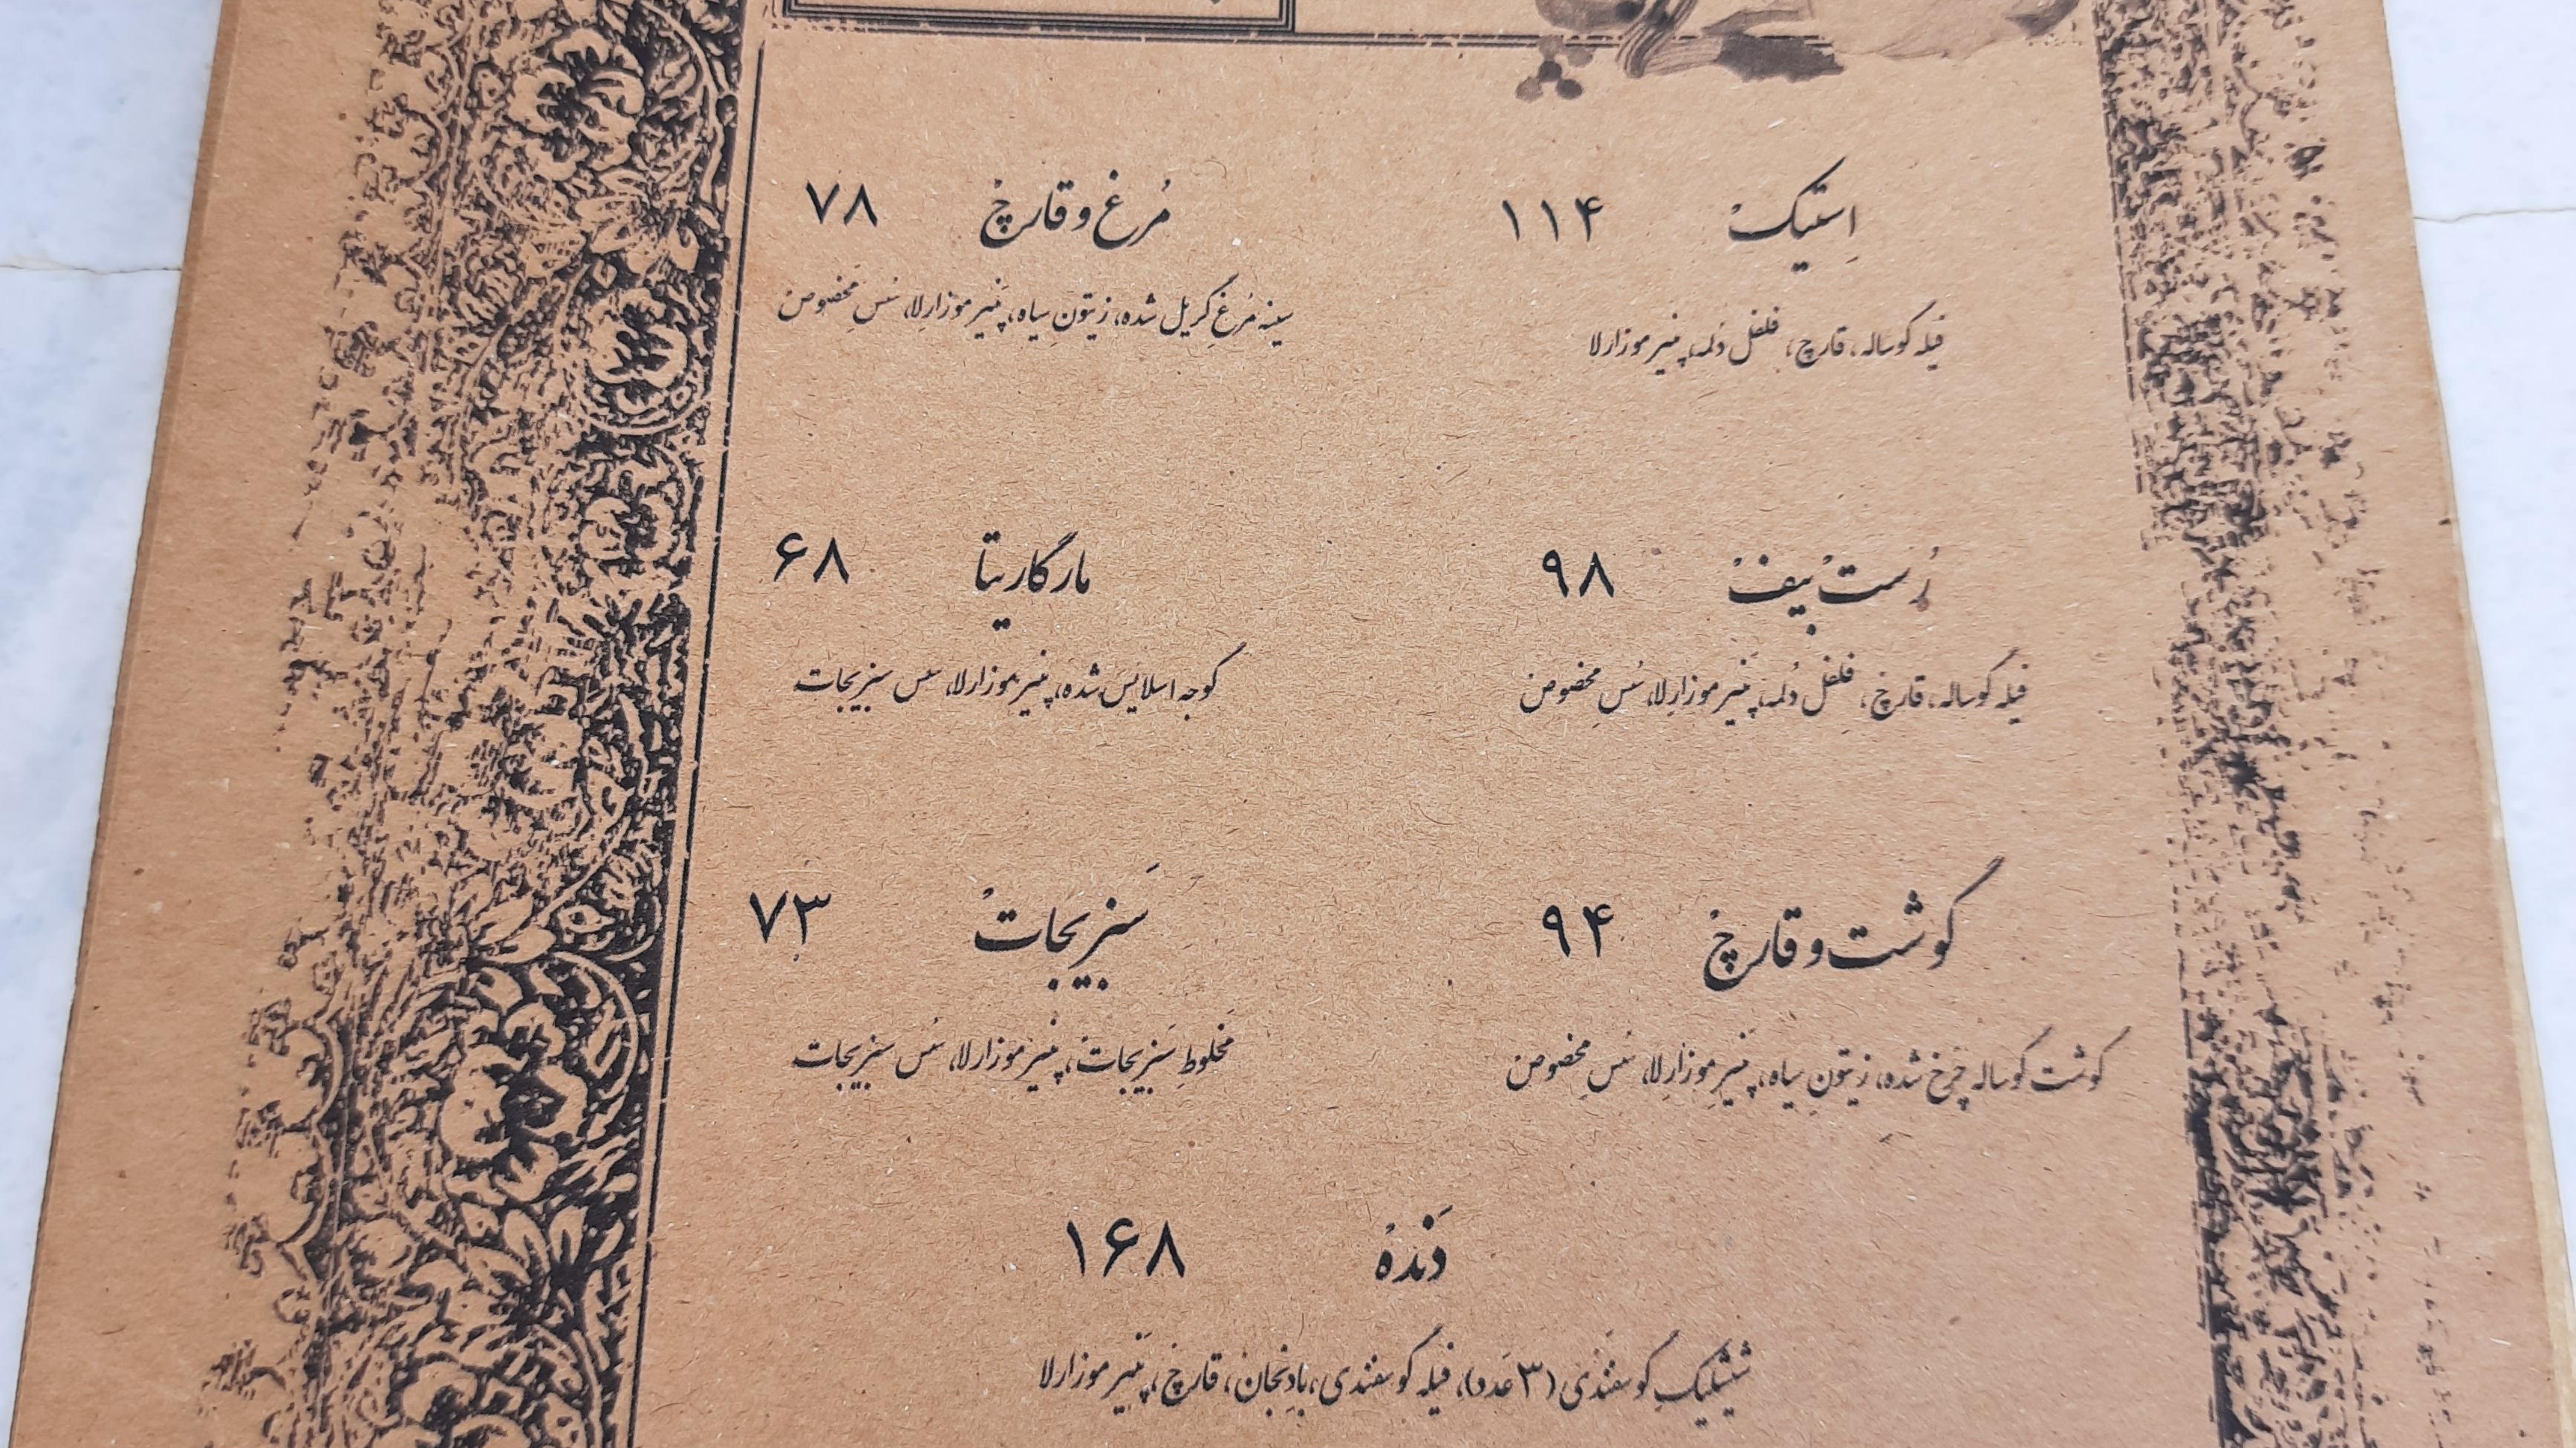 اِستیکْ ۱۱۴
فیله گوساله، قارچ، فلفل دُلمه، پنیر موزارلا
مُرغ و قارچْ ۷۸
سینه مُرغِ گریل شده، زیتونِ سیاه، پَنیر موزارِلا، سُسِ مَخصوص
رُستْ بیفْ ۹۸
فیله گوساله، قارچْ، فلفل دُلمه، پَنیر موزارِلا، سُسِ مخصوص
مارگاریتا ۶۸
گوجه اسلایس شده، پنیر موزارلا، سس سبزیجات
گوشت و قارچْ ۹۴
گوشت گوساله چَرخ شده، زیتونِ سیاه، پَنیرِ موزارِلا، سُسِ مخصوص
سَبزیجاتْ ۷۳
مَخلوطِ سَبزیجاتْ، پنیر موزارلا، سُس سبزیجات
دَندهْ ۱۶۸
شیشلیکِ گوسفَندی (۳ عَدد)، فیله گوسفندی، بادِنجان، قارچْ، پَنیر موزارلا